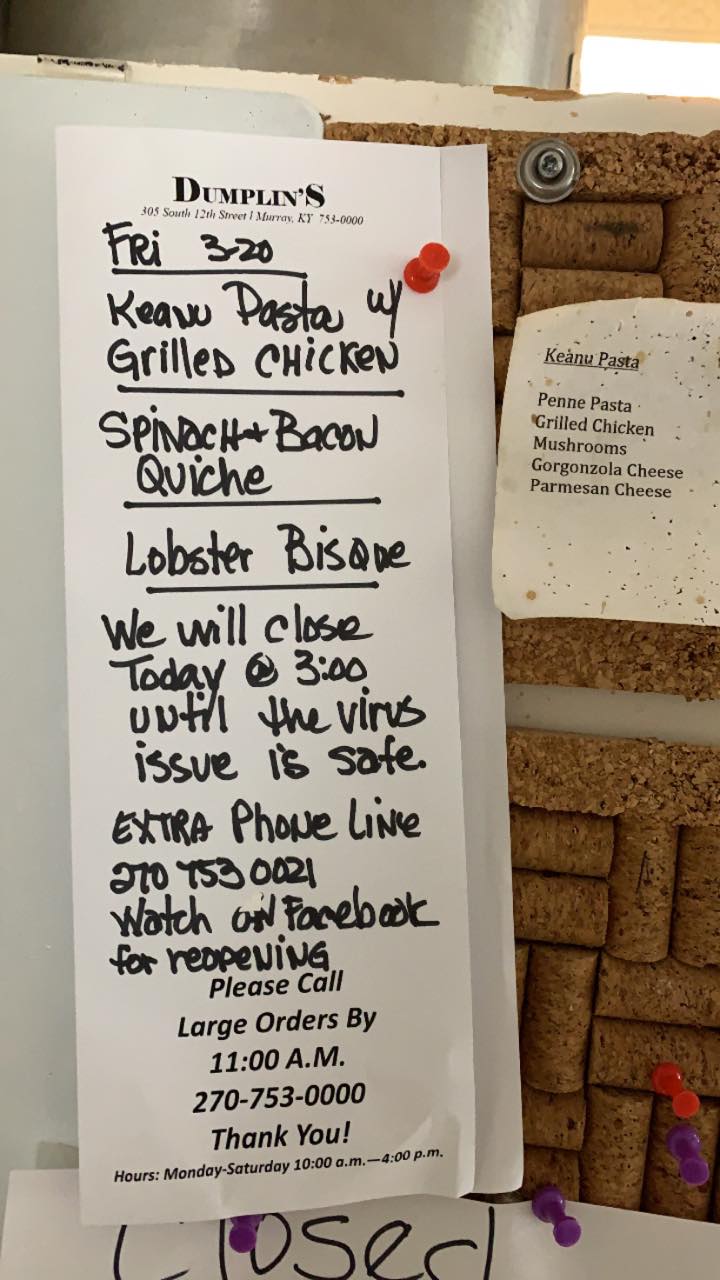 DUMPLIN'S
305 South 12th Street | Murray, KY 753-0000
FRi 3-20
Keanu Pasta w/
GrilleD CHICKEN
SPiNACH + BACON
QUiche
Lobster BisQue
We will close
Today @ 3:00
until the virus
issue is safe.
EXTRA PhoNe LiNe
270 753 0021
Watch ON Facebook
for reopeNiNG
Please Call
Large Orders By
11:00 A.M.
270-753-0000
Thank You!
Hours: Monday-Saturday 10:00 a.m.—4:00 p.m.
Closed
Keanu Pasta
Penne Pasta
Grilled Chicken
Mushrooms
Gorgonzola Cheese
Parmesan Cheese